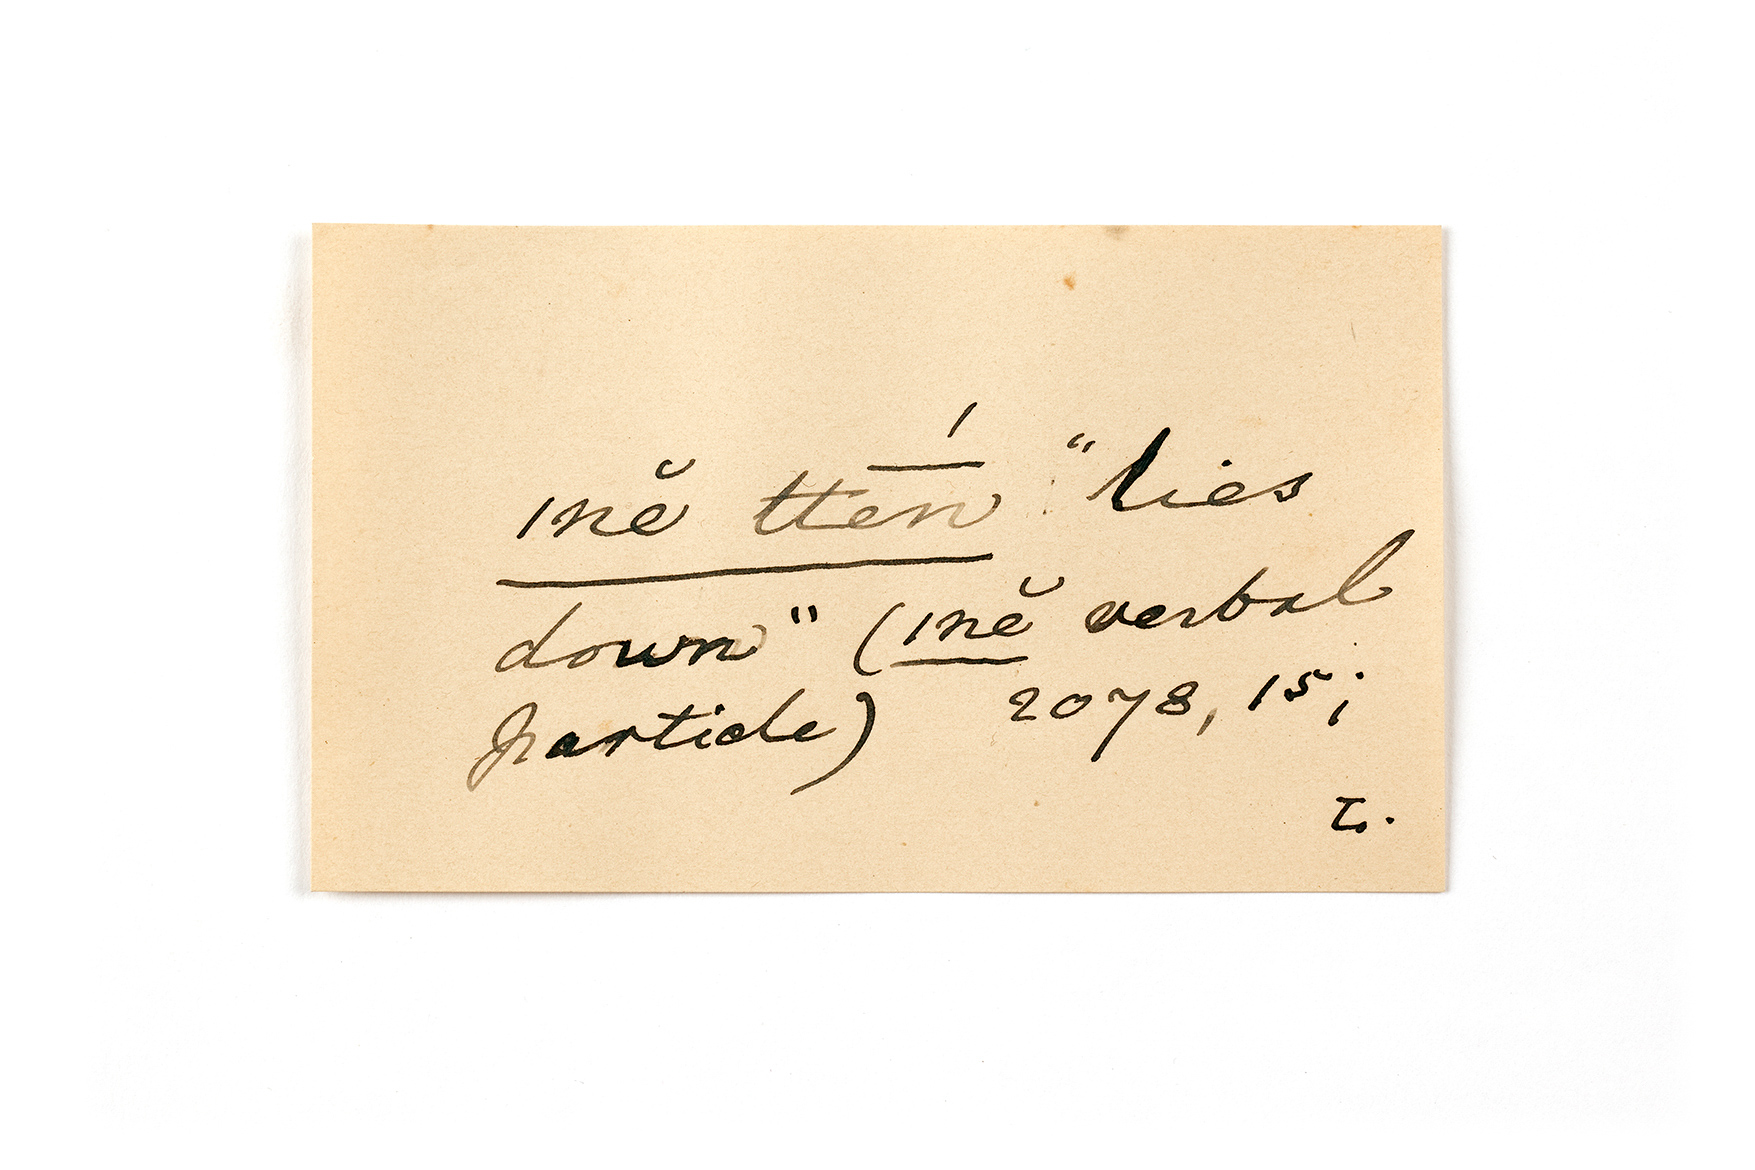 ınĕ ttḗn "lies
down" (ınĕ verbal
particle) 2078, 15;
τ.